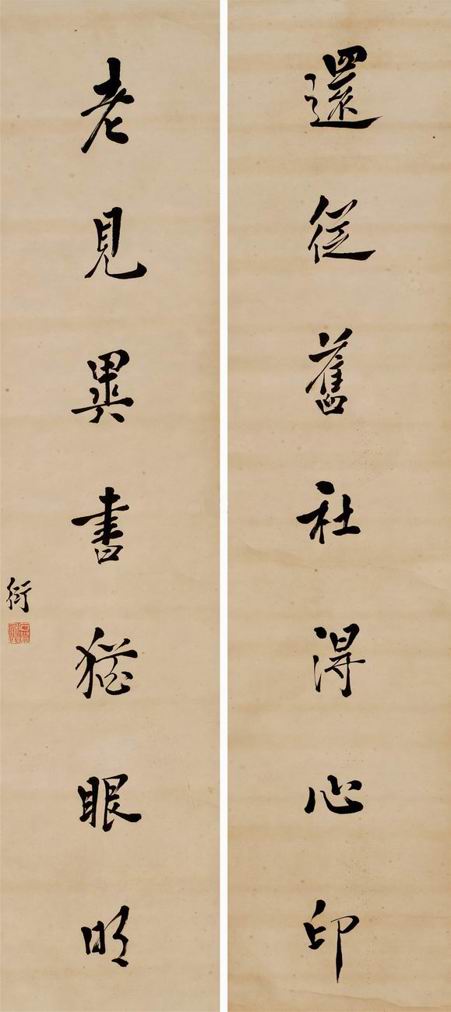 還從舊社得心印
老見異書猶眼明
衍